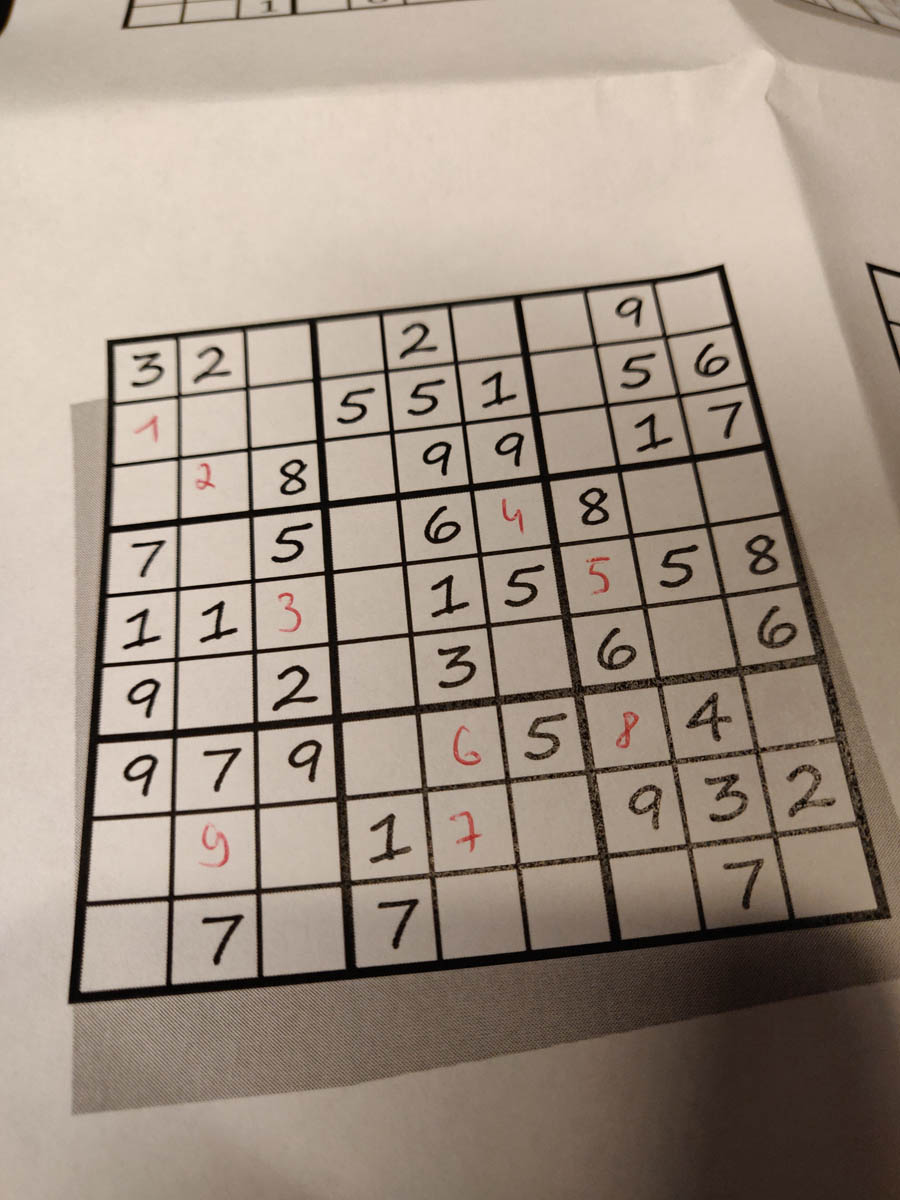 3 2 2 9
1 5 5 1 5 6
2 8 9 9 1 7
7 5 6 4 8
1 1 3 1 5 5 5 8
9 2 3 6 6
9 7 9 6 5 8 4
9 1 7 9 3 2
7 7 7